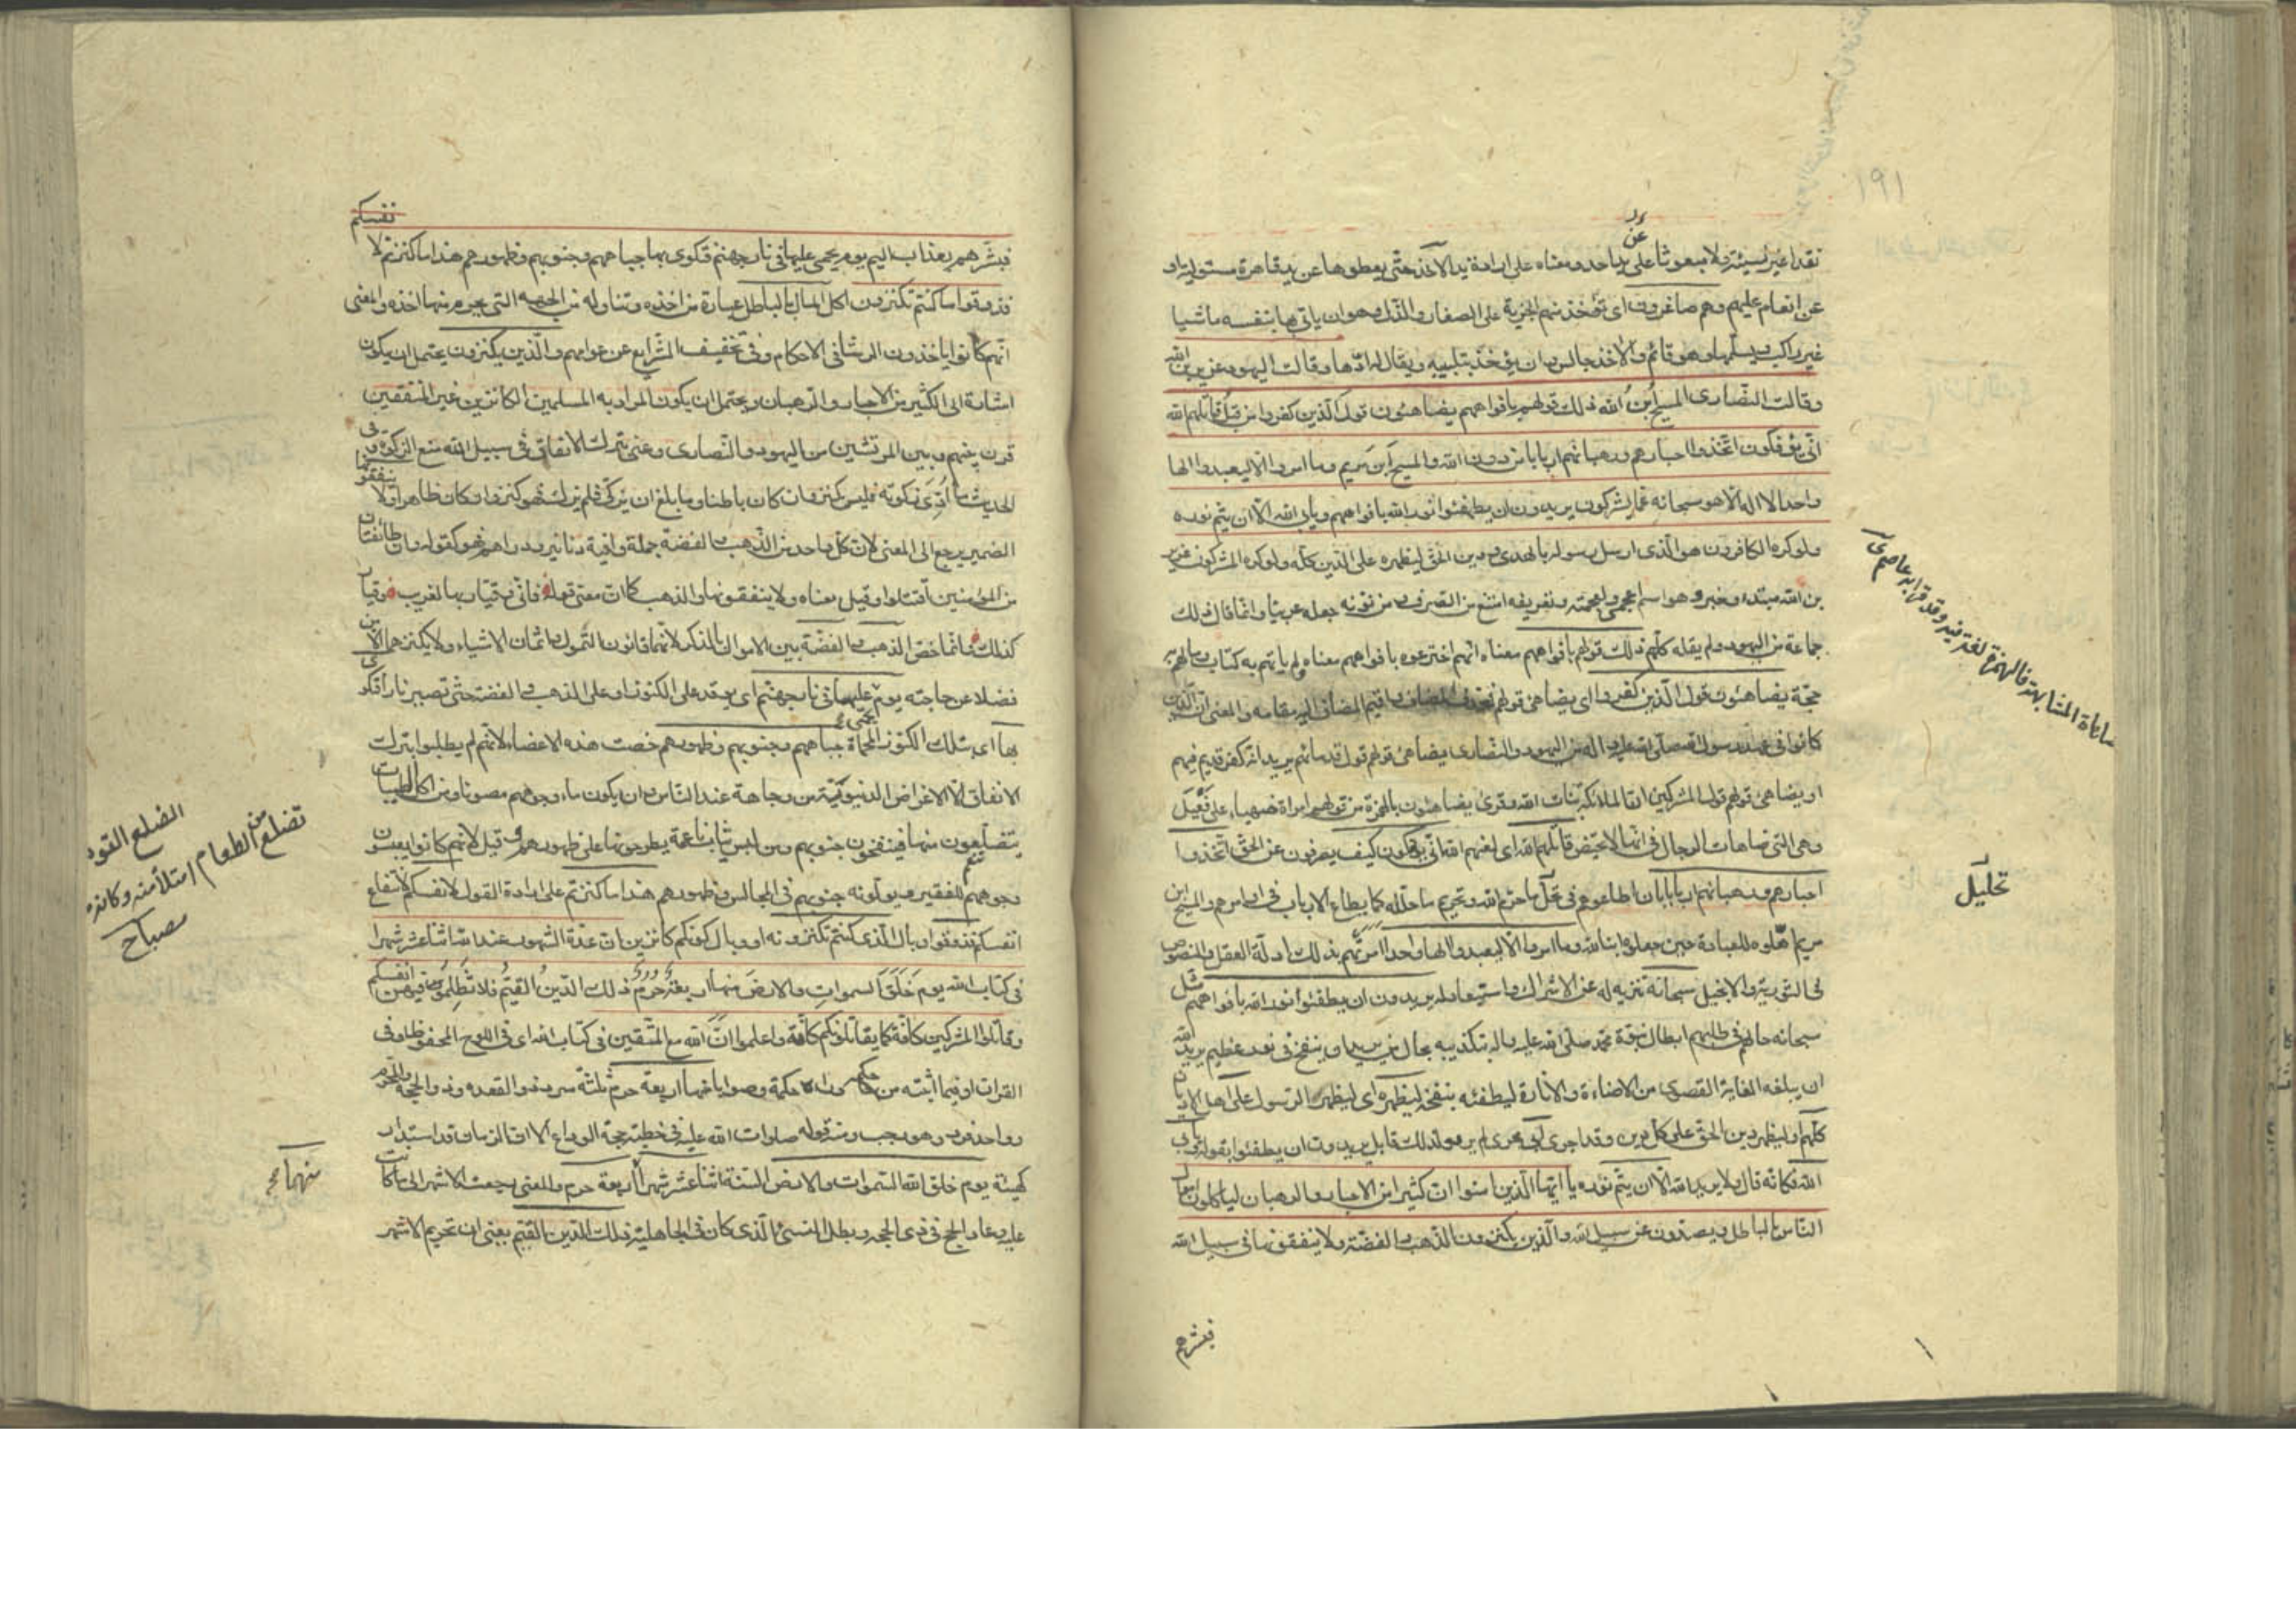 ١٩١
نقدا غير نسيئة ولا مبعوثا على يد احد ومعناه على ارادة يد الآخذ حتى يعطوها عن يد قاهرة مستولية او
عن انعام عليهم وهم صاغرون اى تؤخذ منهم الجزية على الصغار والذل وهو ان ياتى بها بنفسه ماشيا
غير راكب ويسلمها وهو قائم والآخذ جالس وان يؤخذ بتلبيبه ويقال له ادّها وقالت اليهود عزير بن الله
وقالت النصارى المسيح ابن الله ذلك قولهم بافواههم يضاهئون قول الذين كفروا من قبل قاتلهم الله
انّى يؤفكون اتخذوا احبارهم ورهبانهم اربابا من دون الله والمسيح ابن مريم وما امروا الا ليعبدوا الها
واحدا لا اله الا هو سبحانه عما يشركون يريدون ان يطفئوا نور الله بافواههم ويأبى الله الا ان يتم نوره
ولو كره الكافرون هو الذى ارسل رسوله بالهدى ودين الحق ليظهره على الدين كله ولو كره المشركون عزير
بن الله مبتدء وخبر وهو اسم اعجمى ولعجمته وتعريفه امتنع من الصرف ومن نوّنه جعله عربيا وانما قال ذلك
جماعة من اليهود ولم يقله كلهم ذلك قولهم بافواههم معناه انهم اخترعوه بافواههم ولم ياتهم به كتاب وما لهم به
حجة يضاهئون قول الذين كفروا اى يضاهى قولهم فحذف المضاف واقيم المضاف اليه مقامه والمعنى ان الذين
كانوا فى عهد رسول الله صلى الله عليه واله من اليهود والنصارى يضاهى قولهم قول قدمائهم يريد انه كفر قديم فيهم
او يضاهى قولهم قول المشركين ان الملائكة بنات الله وقرئ يضاهئون بالهمزة من قولهم امراة ضهياء على فعيل
وهى التى ضاهات الرجال فى انها لا تحيض قاتلهم الله اى لعنهم الله انى يؤفكون كيف يصرفون عن الحق اتخذوا
احبارهم ورهبانهم اربابا بان اطاعوهم فى تحليل ما حرم الله وتحريم ما حلله كما يطاع الارباب فى اوامرهم والمسيح ابن
مريم اهّلوه للعبادة حين جعلوه ابنا لله وما امروا الا ليعبدوا الها واحدا امرتهم بذلك ادلة العقل والنصوص
فى التورية والانجيل سبحانه تنزيه له عن الاشراك واستبعاد له يريدون ان يطفئوا نور الله بافواههم مثل
سبحانه حالهم فى طلبهم ابطال نبوة محمد صلى الله عليه واله بتكذيبه بحال من يريد ان ينفخ فى نور عظيم يريد الله
ان يبلغه الغاية القصوى من الاضاءة والانارة ليطفئه بنفخه ليظهره اى ليظهر الرسول على اهل الاديان
كلهم او ليظهر دين الحق على كل دين وقد اجرى ابى مجرى لم يرد ولذلك قابل يريدون ان يطفئوا بقوله ويأبى
الله فكانه قال ولا يريد الله الا ان يتم نوره يا ايها الذين امنوا ان كثيرا من الاحبار والرهبان لياكلون اموال
الناس بالباطل ويصدون عن سبيل الله والذين يكنزون الذهب والفضة ولا ينفقونها فى سبيل الله
فبشرهم
تحليل
فبشرهم بعذاب اليم يوم يحمى عليها فى نار جهنم فتكوى بها جباههم وجنوبهم وظهورهم هذا ما كنزتم لانفسكم
فذوقوا ما كنتم تكنزون اكل المال بالباطل عبارة من اخذه وتناوله من الجهه التى يحرم منها اخذه والمعنى
انهم كانوا ياخذون الرشا فى الاحكام وفى تخفيف الشرايع عن عوامهم والذين يكنزون يحتمل ان يكون
اشارة الى الكثير من الاحبار والرهبان ويحتمل ان يكون المراد به المسلمين الكانزين غير المنفقين
قرن بينهم وبين المرتشين من اليهود والنصارى وعنى بترك الانفاق فى سبيل الله منع الزكوة وفى
الحديث ما ادّى زكوته فليس بكنز وان كان باطنا وما بلغ ان يزكى فلم يزك فهو كنز وان كان ظاهرا ولا ينفقونها
الضمير يرجع الى المعنى لان كل واحد من الذهب والفضة جملة وافية دنانير ودراهم فهو كقوله وان طائفتان
من المؤمنين اقتتلوا وقيل معناه ولا ينفقونها والذهب كما ان معنى قوله فانى وقيار بها لغريب وقيار
كذلك وانما خص الذهب والفضة بين الاموال بالذكر لانهما قانون التمول واثمان الاشياء ولا يكنزهما الا من
فضلا عن حاجته يوم يحمى عليها فى نار جهنم اى يوقد على الكنوز او على الذهب والفضة حتى تصير نارا فتكوى
بها اى بتلك الكنوز المحماة جباههم وجنوبهم وظهورهم خصت هذه الاعضاء لانهم لم يطلبوا بترك
الانفاق الا الاغراض الدنيوية من وجاهة عند الناس وان يكون ماء وجوههم مصونا ومن اكل الطيبات
يتضلعون منها فينفخون جنوبهم ومن لبس ثياب ناعمة يطرحونها على ظهورهم وقيل لانهم كانوا يعبسون
وجوههم للفقير ويولونه جنوبهم فى المجالس وظهورهم هذا ما كنزتم على ارادة القول لانفسكم لانتفاع
انفسكم فذوقوا وبال الذى كنتم تكنزونه او وبال كونكم كانزين ان عدة الشهور عند الله اثنا عشر شهرا
فى كتاب الله يوم خلق السموات والارض منها اربعة حرم ذلك الدين القيّم فلا تظلموا فيهن انفسكم
وقاتلوا المشركين كافة كما يقاتلونكم كافة واعلموا ان الله مع المتقين فى كتاب الله اى فى اللوح المحفوظ او فى
القران او فيما اثبته من حكمه وراه حكمة وصوابا منها اربعة حرم ثلثة سرد ذو القعده وذو الحجة والمحرم
وواحد فرد وهو رجب ومنه قوله صلوات الله عليه فى خطبته حجة الوداع الا ان الزمان قد استدار
كهيئة يوم خلق الله السموات والارض السنة اثنا عشر شهرا اربعة حرم والمعنى رجعت الاشهر الى ما كانت
عليه وعاد الحج فى ذى الحجه وبطل النسئ الذى كان فى الجاهلية ذلك الدين القيم يعنى ان تحريم الاشهر
الضلع القوة
تضلع من الطعام امتلأ منه وكانه
مصباح
منها